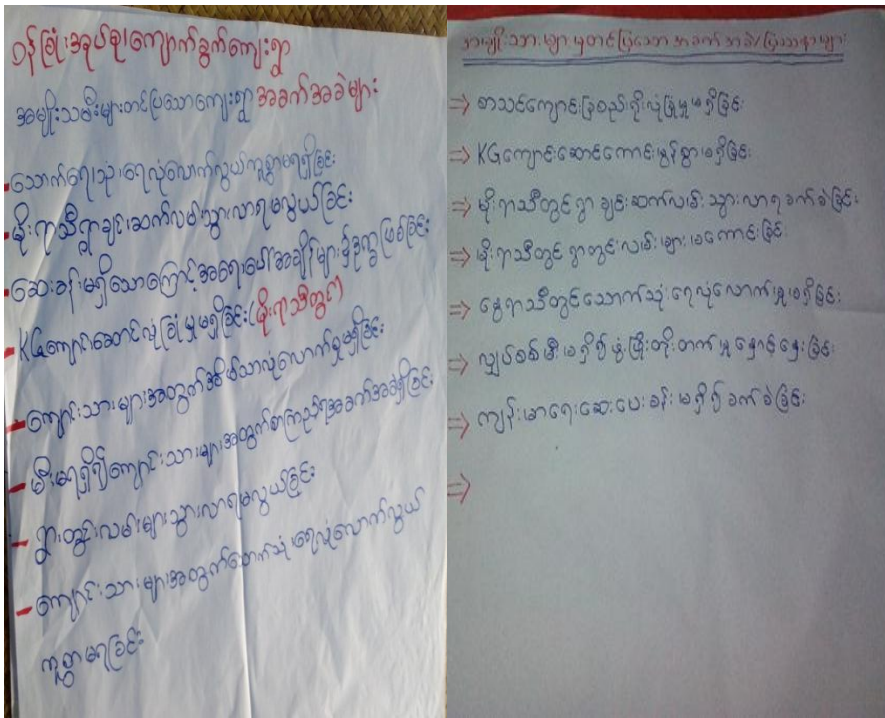 ဝန်ခြုံးအုပ်စု၊ကျောက်ခွက်ကျေးရွာ
အမျိုးသမီးများတင်ပြသောကျေးရွာအခက်အခဲများ
-သောက်ရေ၊သုံးရေလုံလောက်လွယ်ကူစွာမရရှိခြင်း
-မိုးရာသီရွာချင်းဆက်လမ်းသွားလာရမလွယ်ခြင်း
-ဆေးခန်းမရှိသောကြောင့်အရေးပေါ်အချိန်များ၌ဒုက္ခဖြစ်ခြင်း
-KGကျောင်းဆောင်လုံခြုံမှုမရှိခြင်း(မိုးရာသီတွင်)
-ကျောင်းသားများအတွက်အိမ်သာလုံလောက်မှုမရှိခြင်း
-မီးမရရှိ၍ကျောင်းသားများအတွက်စာကြည့်ရအခက်အခဲရှိခြင်း
-ရွာတွင်းလမ်းများသွားလာရမလွယ်ခြင်း
-ကျောင်းသားများအတွက်သောက်သုံးရေလုံလောက်လွယ်
ကူစွာမရခြင်း
အမျိုးသားများမှတင်ပြသောအခက်အခဲ/ပြဿနာများ
⇒ စာသင်ကျောင်းခြံစည်းရိုးလုံခြုံမှုမရှိခြင်း
⇒ KGကျောင်းဆောင်ကောင်းမွန်စွာမရှိခြင်း
⇒ မိုးရာသီတွင်ရွာချင်းဆက်လမ်းသွားလာရခက်ခဲခြင်း
⇒ မိုးရာသီတွင်ရွာတွင်းလမ်းများမကောင်းခြင်း
⇒ နွေရာသီတွင်သောက်သုံးရေလုံလောက်မှုမရှိခြင်း
⇒ လျှပ်စစ်မီးမရှိ၍ဖွံ့ဖြိုးတိုးတက်မှုနှောင့်နှေးခြင်း
⇒ ကျန်းမာရေးဆေးပေးခန်းမရှိ၍ခက်ခဲခြင်း
⇒